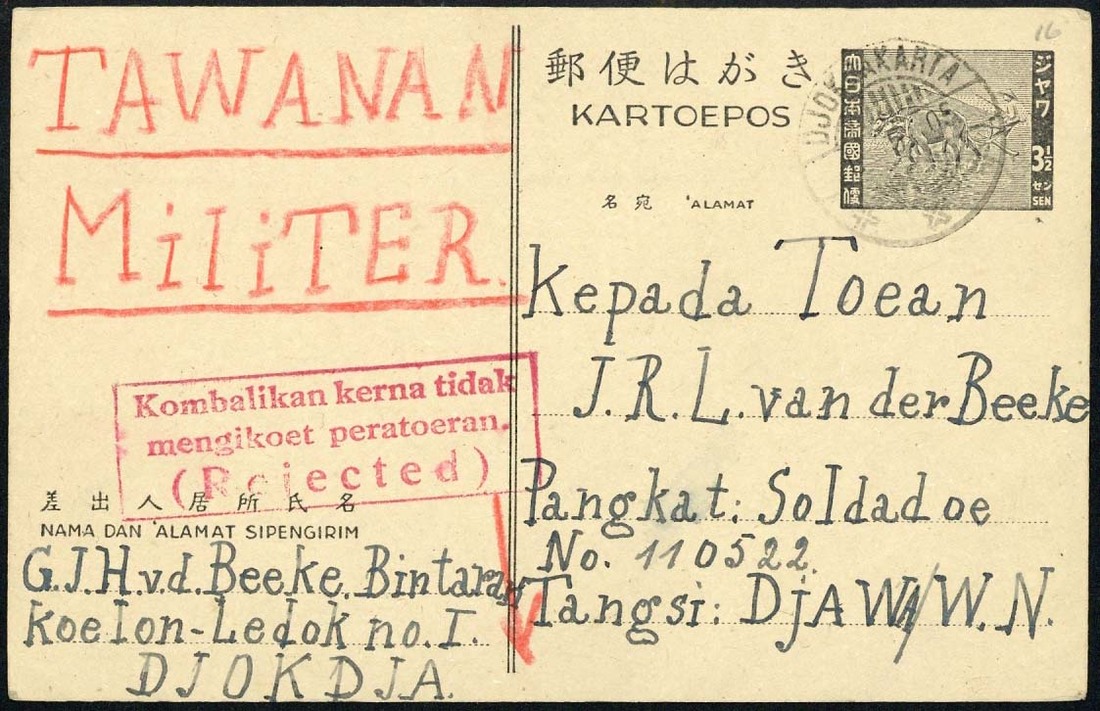 TAWANAN
MiLiTER.
Kombalikan kerna tidak
mengikoet peratoeran.
(Rejected)
差出人居所氏名
NAMA DAN 'ALAMAT SIPENGIRIM
G.J.H.v.d. Beeke, Bintaran
Koelon-Ledok no. I.
DJOKDJA.
16
郵便はがき
KARTOEPOS
DJOKJAKARTA
大日本帝國郵便
ジャワ
3½
セン
SEN
名宛 'ALAMAT
Kepada Toean
J.R.L. van der Beeke
Pangkat: Soldadoe
No. 110522.
Tangsi: DjAWA/W.N.